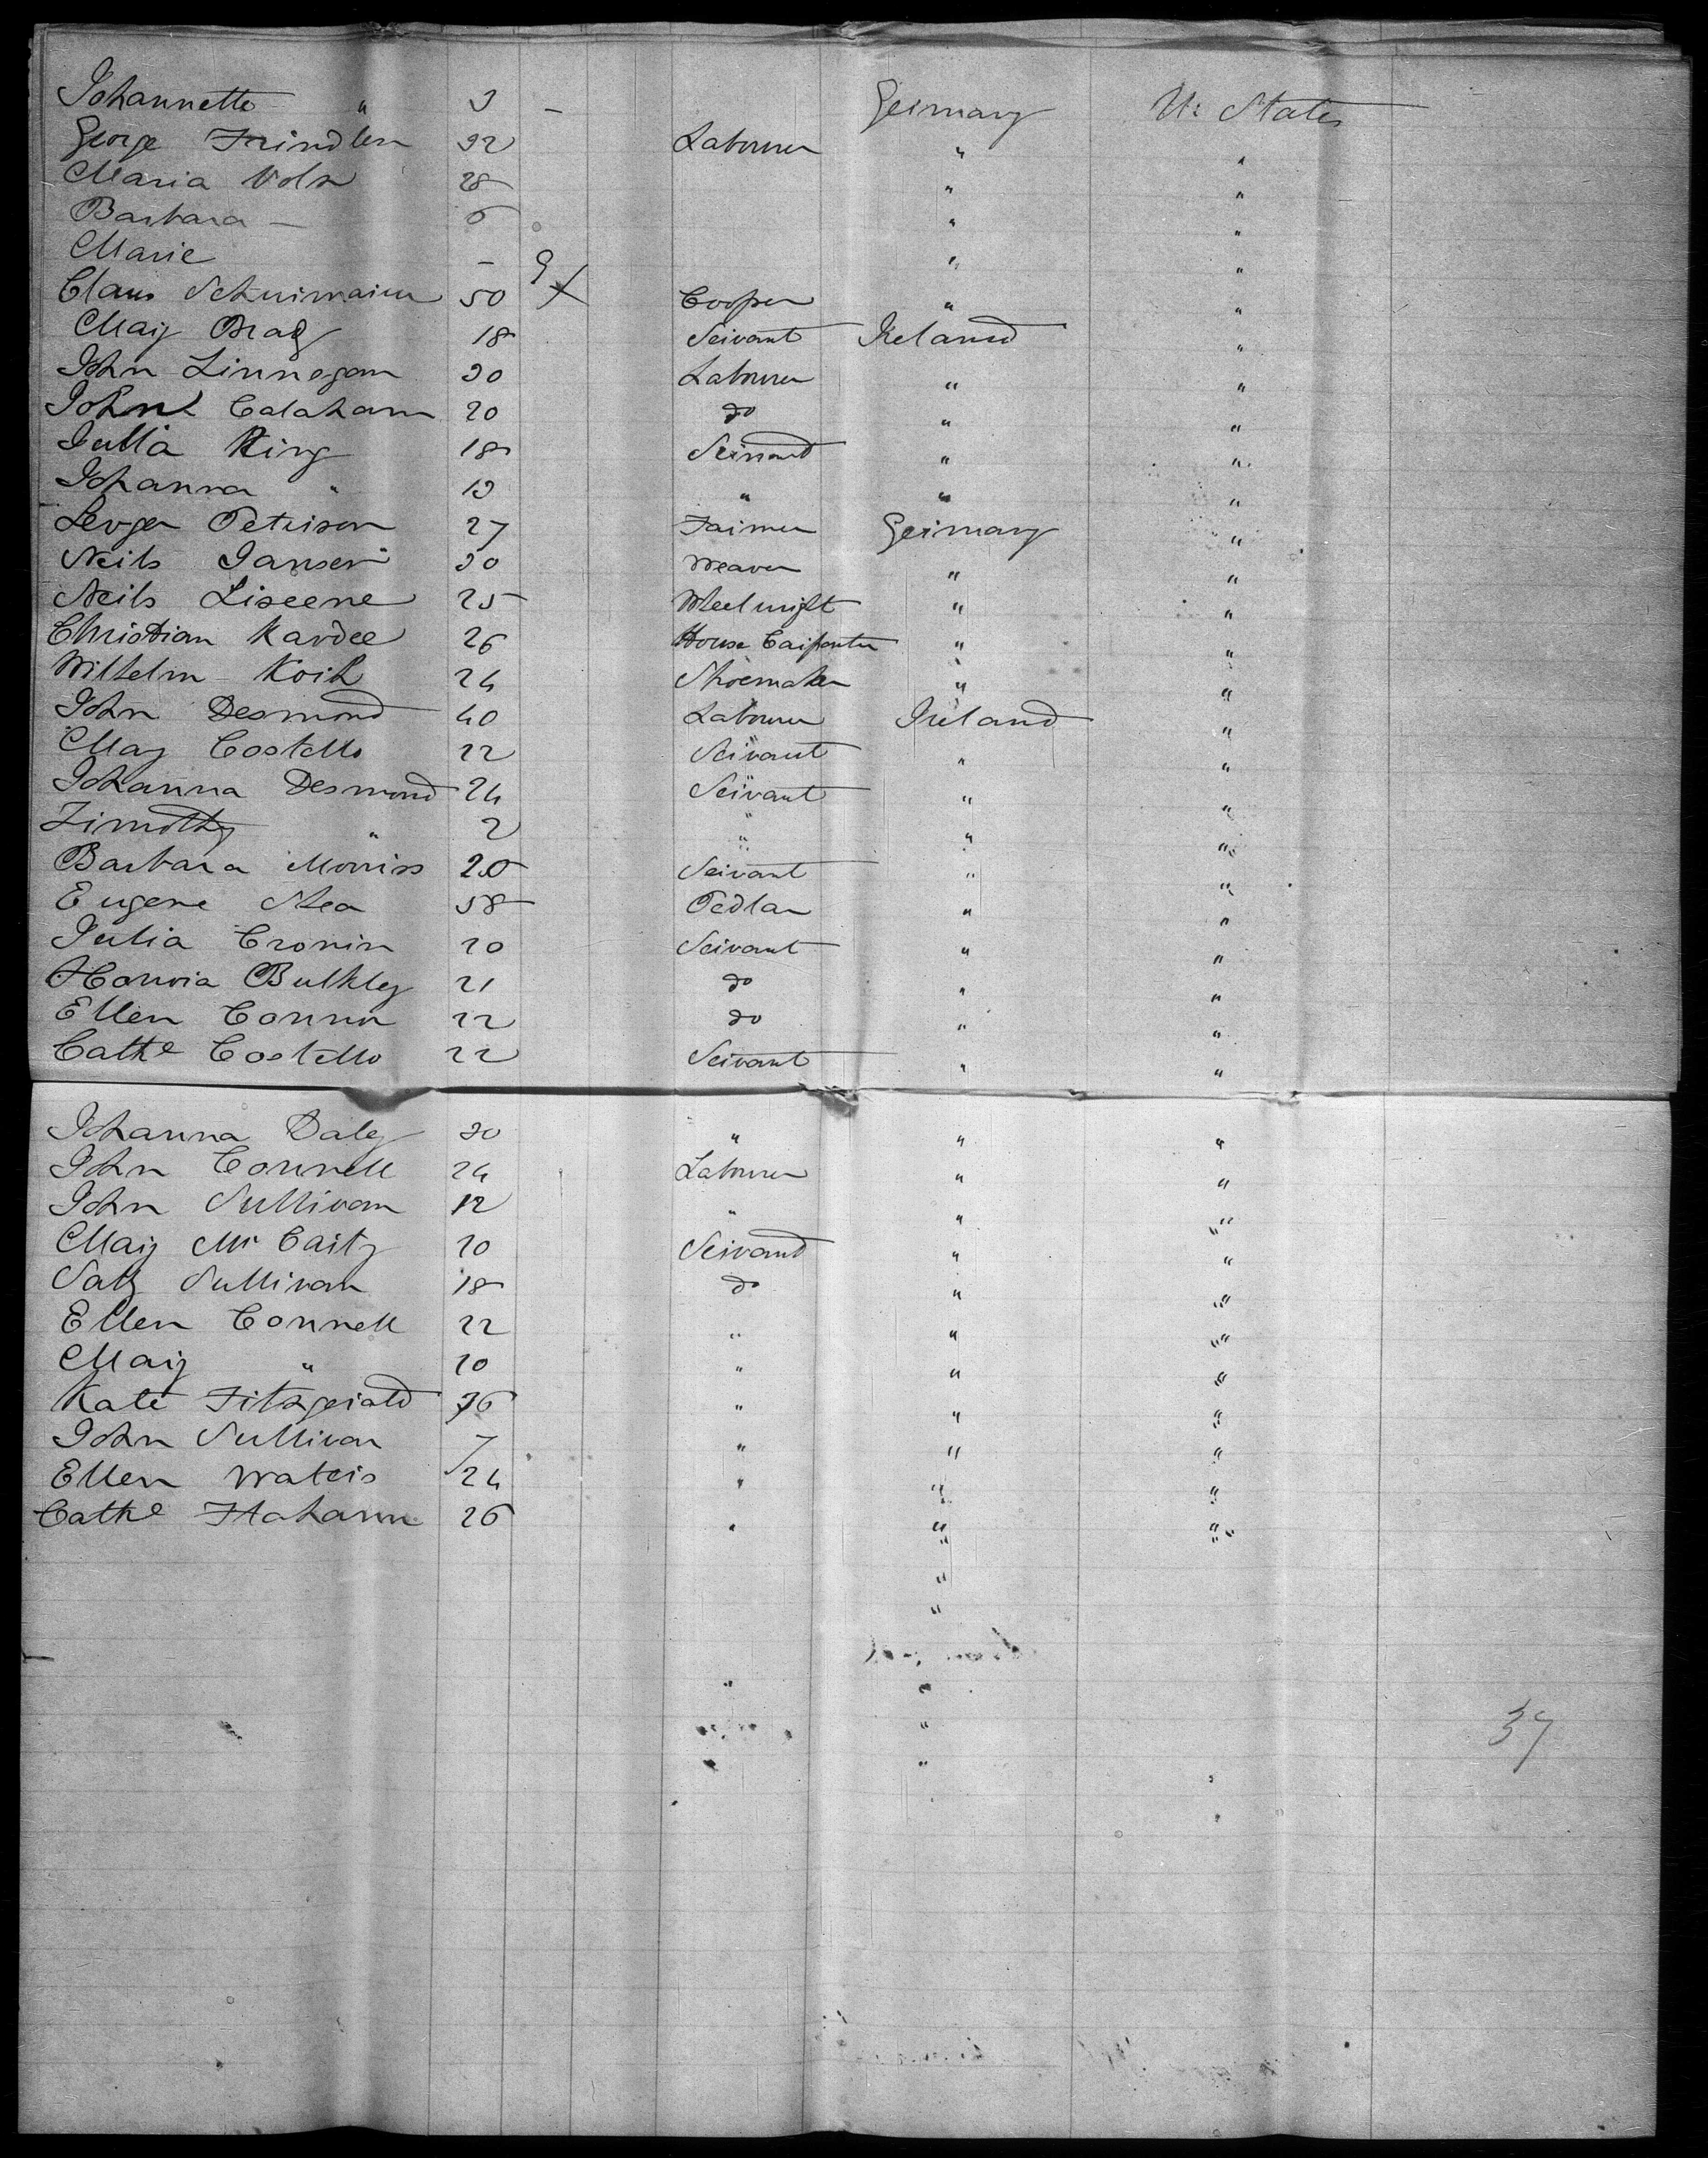 Johannette " 3 - Germany U: States
George Trindlen 32 Labourer " "
Maria Volz 28 " "
Barbara - 6 " "
Marie - 9 " "
Claus 50 Cooper " "
Mary Brady 18 Servant Ireland "
John Linnegan 30 Labourer " "
John Calahann 20 do " "
Julia King 18 Servand " "
Johanna " 13 " " "
Petrison 27 Farmer Germany "
Neils Jansen 30 Weaver " "
Neils Liseene 25 Wheelwright " "
Christian Kardee 26 House Carpenter " "
Wilhelm Koik 24 Shoemaker " "
John Desmond 40 Labourer Ireland "
Mary Costello 22 Servant " "
Johanna Desmond 24 Servant " "
Timothy " 2 " " "
Barbara Morriss 20 Servant " "
Eugene Shea 58 Pedlar " "
Julia Cronin 20 Servant " "
Honoria Bulkley 21 do " "
Ellen Connor 22 do " "
Cathe Costello 22 Servant " "
Johanna Daley 20 " " "
John Connell 24 Labourer " "
John Sullivan 12 " " "
Mary Mc Carty 20 Servand " "
Sally Sullivan 18 do " "
Ellen Connell 22 " " "
Mary " 20 " " "
Kate Fitzgerald 36 " " "
John Sullivan 7 " " "
Ellen Waters 24 " " "
Cathe Flahann 26 " " "
37